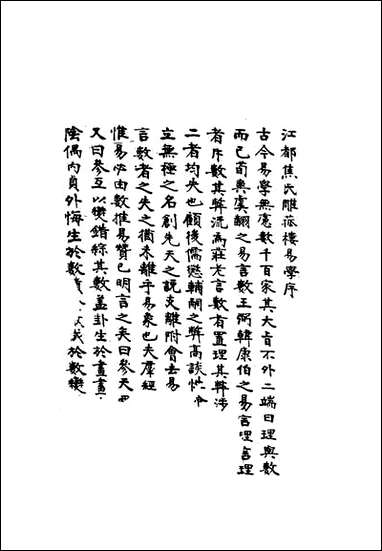 江都焦氏雕菰樓易學序
古今易學無慮數千百家其大旨不外二端曰理與數
而已荀奭虞翻之易言數王弼韓康伯之易言理言理
者斥數其弊流為莊老言數者置理其弊涉
二者均失也顧後儒懲輔嗣之弊高談性命
立無極之名創先天之說支離附會去易
言數者之失之猶未離乎易象也夫羣經
惟易必由數推易贊已明言之矣曰參天
又曰參互以變錯綜其數蓋卦生於畫畫
陰偶內貞外悔生於數 於數變